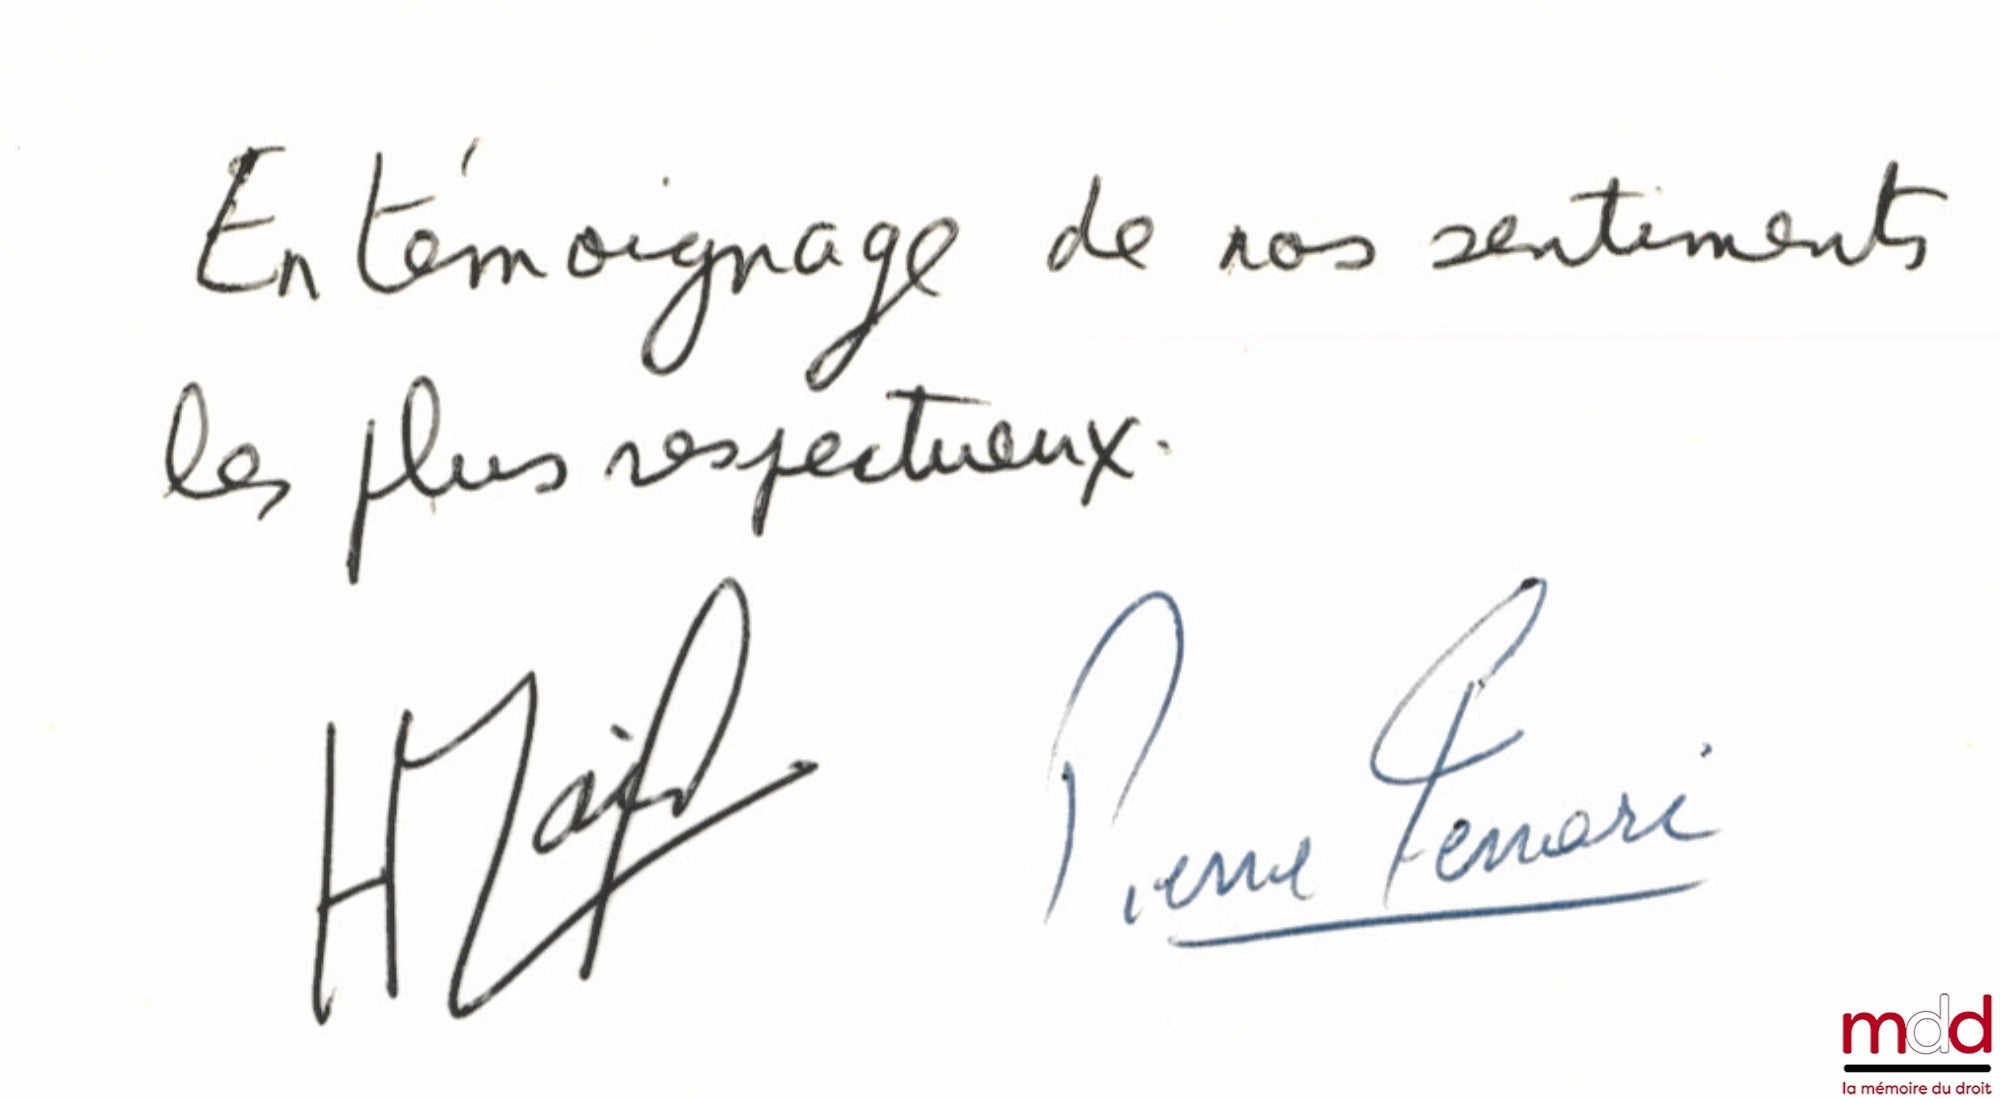 En témoignage de nos sentiments
les plus respectueux.
Pierre Ferrari
mdd
la mémoire du droit